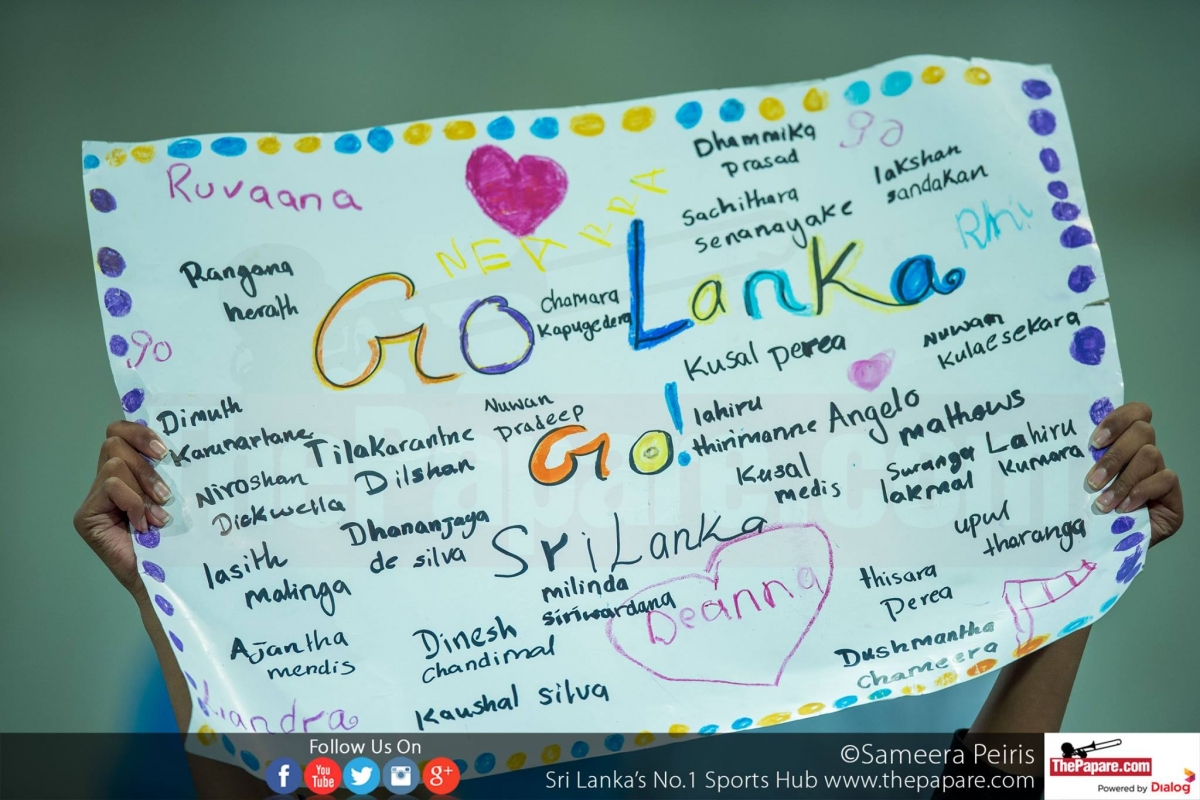 Ruvaana
NEARRA
Dhammika
Prasad
go
lakshan
sandakan
Sachithara
Senanayake
Rangana
herath
Go Lanka
chamara
Kapugedera
Kusal perea
Nuwan
Kulaesekara
go
Dimuth
Karunartane
Tilakarantne
Dilshan
Nuwan
Pradeep
Go!
lahiru
thirimanne
Angelo
mathows
Niroshan
Dickwella
Kusal
medis
Suranga
lakmal
Lahiru
Kumara
Dhananjaya
de silva
Sri Lanka
upul
tharanga
lasith
malinga
milinda
siriwardana
Deanna
thisara
Perea
Ajantha
mendis
Dinesh
Chandimal
Dushmantha
Chameera
Kiandra
Kaushal silva
Follow Us On
You
Tube
g+
©Sameera Peiris
Sri Lanka's No.1 Sports Hub www.thepapare.com
ThePapare.com
Powered by Dialog